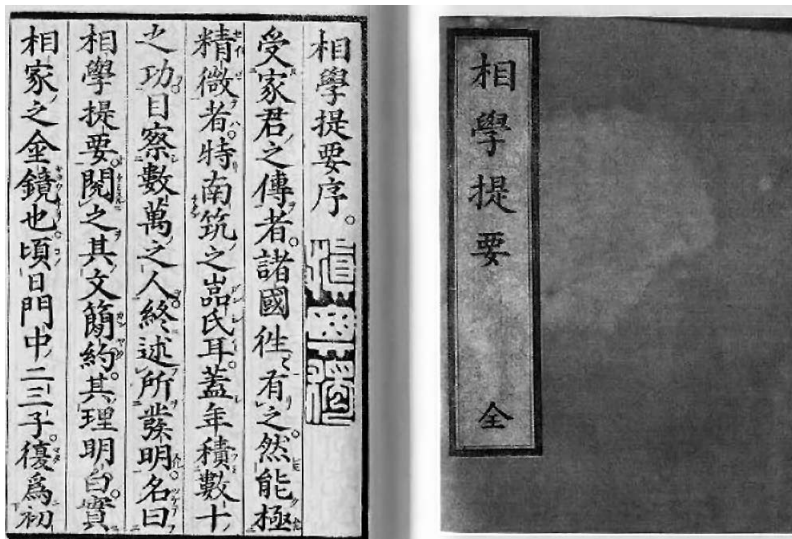 相學提要
全
相學提要序。
受家君之傳者。諸國徃〻有之。然能極
精微者。特南筑之嵒氏耳。蓋年積數十
之功。目察數萬之人。終述所發明。名曰
相學提要。閲之其文簡約。其理明白。實
相家之金鏡也。頃日門中二三子復爲初